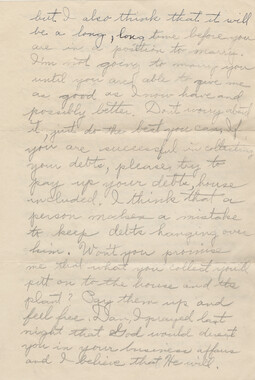 but I also think that it will
be a long, long time before you
are in a position to marry.
I'm not going to marry you
until you are able to give me
as good as I now have and
possibly better. Don't worry about
it, just do the best you can. If
you are successful in collecting
your debts, please try to
pay up your debts, house
included. I think that a
person makes a mistake
to keep debts hanging over
him. Won't you promise
me that what you collect you'll
put on to the house and the
plant? Pay them up and
feel free. Dan, I prayed last
night that God would direct
you in your business affairs
and I believe that He will.